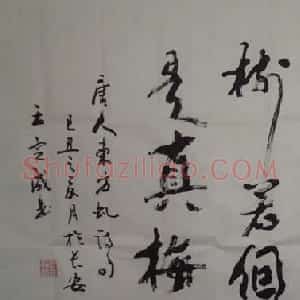 樹若個
是真梅
唐人東方虬詩句
己丑之夏月於長安
王
Shufaziliao.com